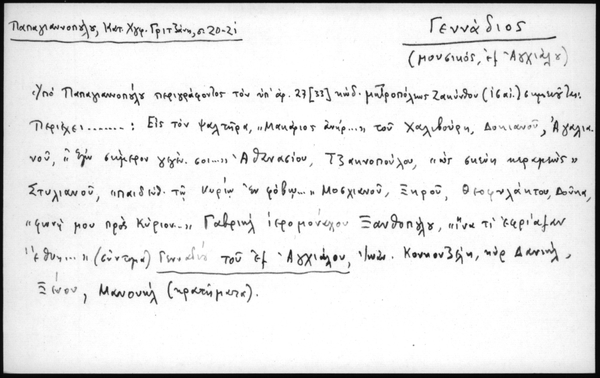 Παπαγιαννοπούλου, Κατ. Χγρ. Γριτσάνη, σ. 20-21
Γεννάδιος
(μουσικός, ἐξ Ἀγχιάλου)
Ὑπό Παπαγιαννοπούλου περιγράφοντος τόν ὑπ' ἀρ. 27[33] κώδ. μητροπόλεως Ζακύνθου
Περιέχει.......: Εἰς τόν ψαλτῆρα, "Μακάριος ἀνήρ..." τοῦ Χαλιβούρη, Δοκιανοῦ, Ἀγαλια-
νοῦ, "Ἐγώ σήμερον γεγέν. σοι..." Ἀθανασίου, Τζακνοπούλου, "ὡς σκεύη κεραμέως"
Στυλιανοῦ, "παιδεύθ. τῷ Κυρίῳ ἐν φόβῳ..." Μοσχιανοῦ, Ξηροῦ, Θεοφυλάκτου, Δούκα,
"φωνῇ μου πρός Κύριον..." Γαβριήλ ἱερομονάχου Ξανθοπούλου, "ἵνα τί ἐφρίαξαν
ἔθνη..." (σύντομα) Γενναδίου τοῦ ἐξ Ἀγχιάλου, Ἰωάν. Κουκουζέλη, κύρ Δανιήλ,
Ξένου, Μανουήλ (κρατήματα).